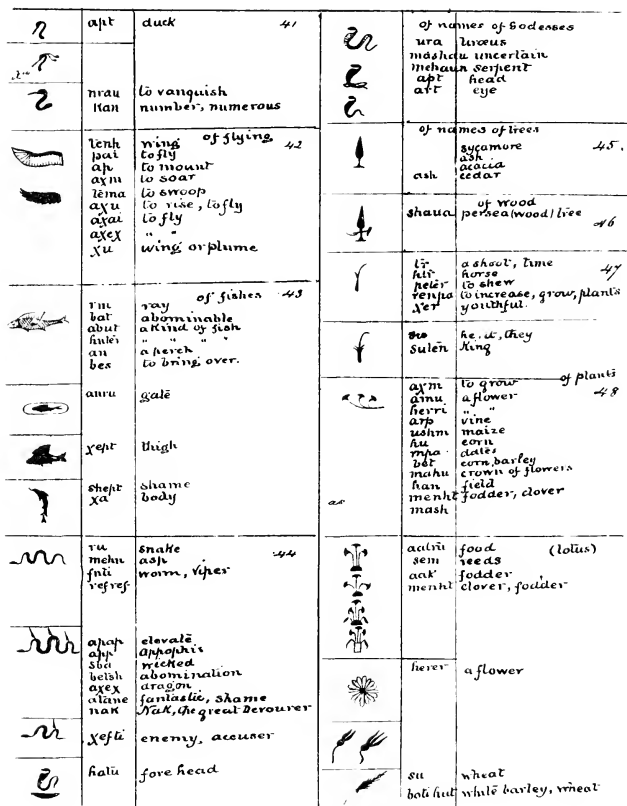 apt duck 41
nrau to vanquish
Kan number, numerous
of flying 42
tenh wing
pai to fly
ap to mount
axm to soar
tema to swoop
axu to rise, to fly
axai to fly
axex " "
xu wing or plume
of fishes 43
rm ray
bat abominable
abut a kind of fish
" " " "
an a perch
bes to bring over.
anru gate
xept thigh
shept shame
xa body
44
ru snake
mehn asp
fnti worm, viper
refref
apap elevate
app appophis
sba wicked
betsh abomination
axex dragon
atane fantastic, shame
nak Nak, the great Devourer
xefti enemy, accuser
hatu fore head
of names of Godesses
ura Uræus
mashau uncertain
mehaun serpent
apt head
art eye
of names of trees 45.
sycamore
ash
acacia
ash cedar
of wood 46
shaua persea (wood) tree
47
tr a shoot, time
htr horse
peter to shew
renpa to increase, grow, plants
xer youthful.
he, it, they
Suten King
of plants 48
axm to grow
amu a flower
herri " "
arp vine
ushm maize
hu corn
mpa dates
bot corn, barley
mahu crown of flowers
han field
as menht fodder, clover
mash
aatru food (lotus)
sem reeds
aak fodder
menht clover, fodder
herer a flower
su wheat
boti hut white barley, wheat